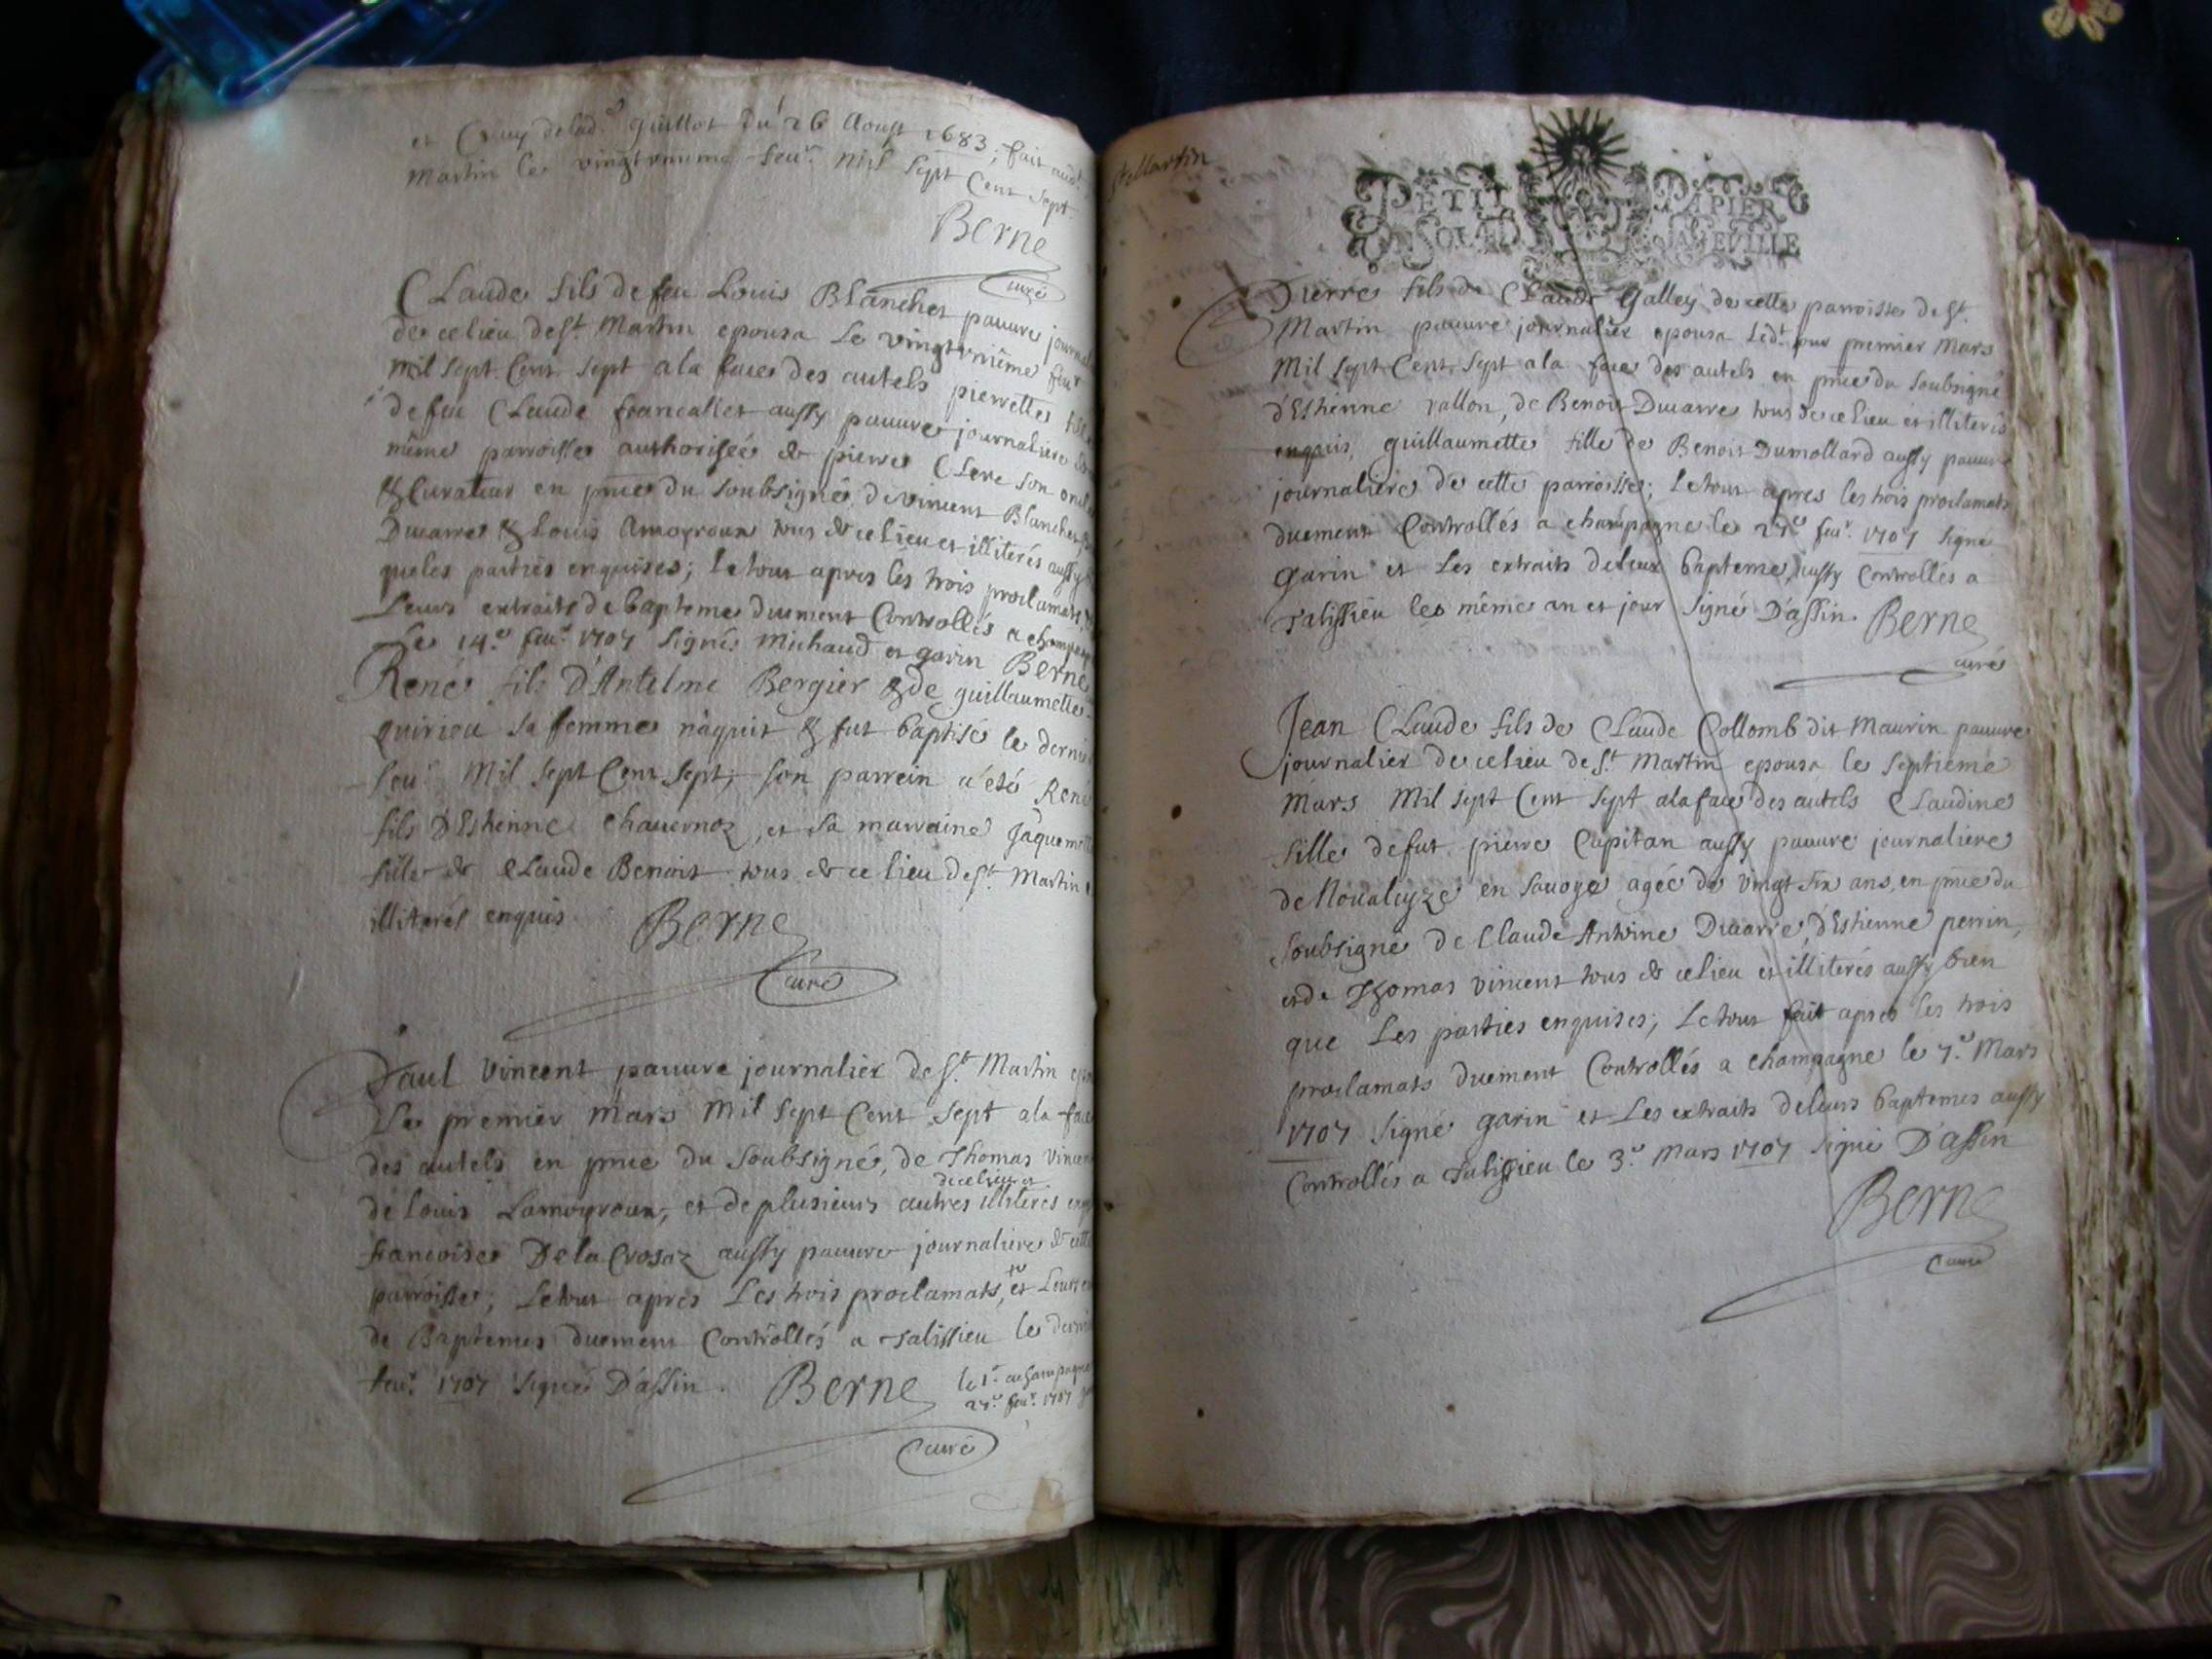 et Celuy delad.e Guillot du 26 Aoust 1683; fait aud.t
Martin le vingtunieme feu.r Mil Sept Cent Sept.
Berne
Curé
Claude fils de feu Louis Blanchet pauure journa
de ce lieu de S.t Martin epousa Le vingtvnième feu.r
Mil Sept Cent Sept a la face des autels pierrette
de feu Claude francalies aussy pauure journaliere
même parroisse authorisée de pierre Clere son oncle
& Curateur en pnce du Soubsigné, de vincent Blanchet,
Ducarre & Louis Amoyroux tous de ce lieu et illiterés aussy
que les parties enquises; le tout apres les trois proclamats,
Leurs extraits de bapteme duement Controllés a champagne
Le 14.e feu.r 1707 Signés Michaud et garin Berne
René fils D'Antelme Bergier & de guillaumette
quirieu sa femme nâquit & fut baptisé le dernie
feu.r Mil Sept Cent Sept; son parrein a été René
fils D'Estienne Chauernoz, et sa marraine Jaquem
fille de Claude Benoit tous de ce lieu de S.t Martin
illiterés enquis. Berne
Curé
Paul Vincent pauure journalier de S.t Martin
Le premier Mars Mil Sept Cent Sept a la face
des autels en pnce du Soubsigné, de Thomas Vincen
de ce lieu et
de Louis Lamoyroux, et de plusieurs autres illiteres
francoise De la Crosaz aussy pauure journaliere de cette
parroisse; Le tout apres Les trois proclamats, et Leurs
de Baptemes duement Controllés a Talissieu le dernie
feu.r 1707 Signé D'assin. Berne le 1.e a champagne
27.e feu.r 1707
Curé
St Martin
PETIT PAPIER
UN SOL LA FEVILLE
Pierre fils de Claude Galley de cette parroisse de S.t
Martin pauure journalier epousa Led.t jour premier Mars
Mil Sept Cent Sept a la face des autels en pnce du Soubsigné
d'Estienne vallon, de Benoit Ducarre tous de ce lieu et illiterés
enquis, guillaumette fille de Benoit Dumollard aussy pauure
journaliere de cette parroisse; Le tout apres les trois proclamats
duement Controllés a champagne le 27.e feu.r 1707 Signé
Garin et Les extraits de leur bapteme, aussy Controllés a
Talissieu les même an et jour Signé D'assin. Berne
curé
Jean Claude fils de Claude Collomb dit Maurin pauure
journalier de ce lieu de S.t Martin epousa le Septieme
Mars Mil Sept Cent Sept a la face des autels Claudine
fille de fut pierre Capitan aussy pauure journaliere
de Noualeyze en Sauoye agée de vingt six ans, en pnce du
Soubsigné de Claude Antoine Ducarre, d'Estienne perrin,
et de Thomas vincent tous de ce lieu et illiterés aussy bien
que Les parties enquises; Le tout fait apres les trois
proclamats Duement Controllés a champagne le 7.e Mars
1707 Signé garin et Les extraits de leurs baptemes aussy
Controllés a Talissieu le 3.e Mars 1707 Signé D'assin
Berne
Curé